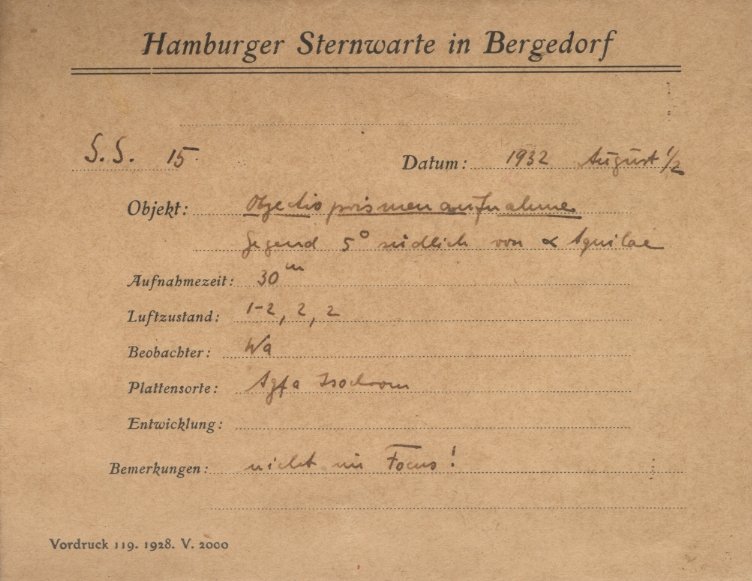 Hamburger Sternwarte in Bergedorf
S. S. 15. Datum: 1932 August 1/2
Objekt: Objectivprismenaufnahme
Gegend 5° südlich von α Aquilae
Aufnahmezeit: 30m
Luftzustand: 1-2, 2, 2
Beobachter: Wa
Plattensorte: Agfa Isochrom
Entwicklung:
Bemerkungen: nicht im Focus!
Vordruck 119. 1928. V. 2000